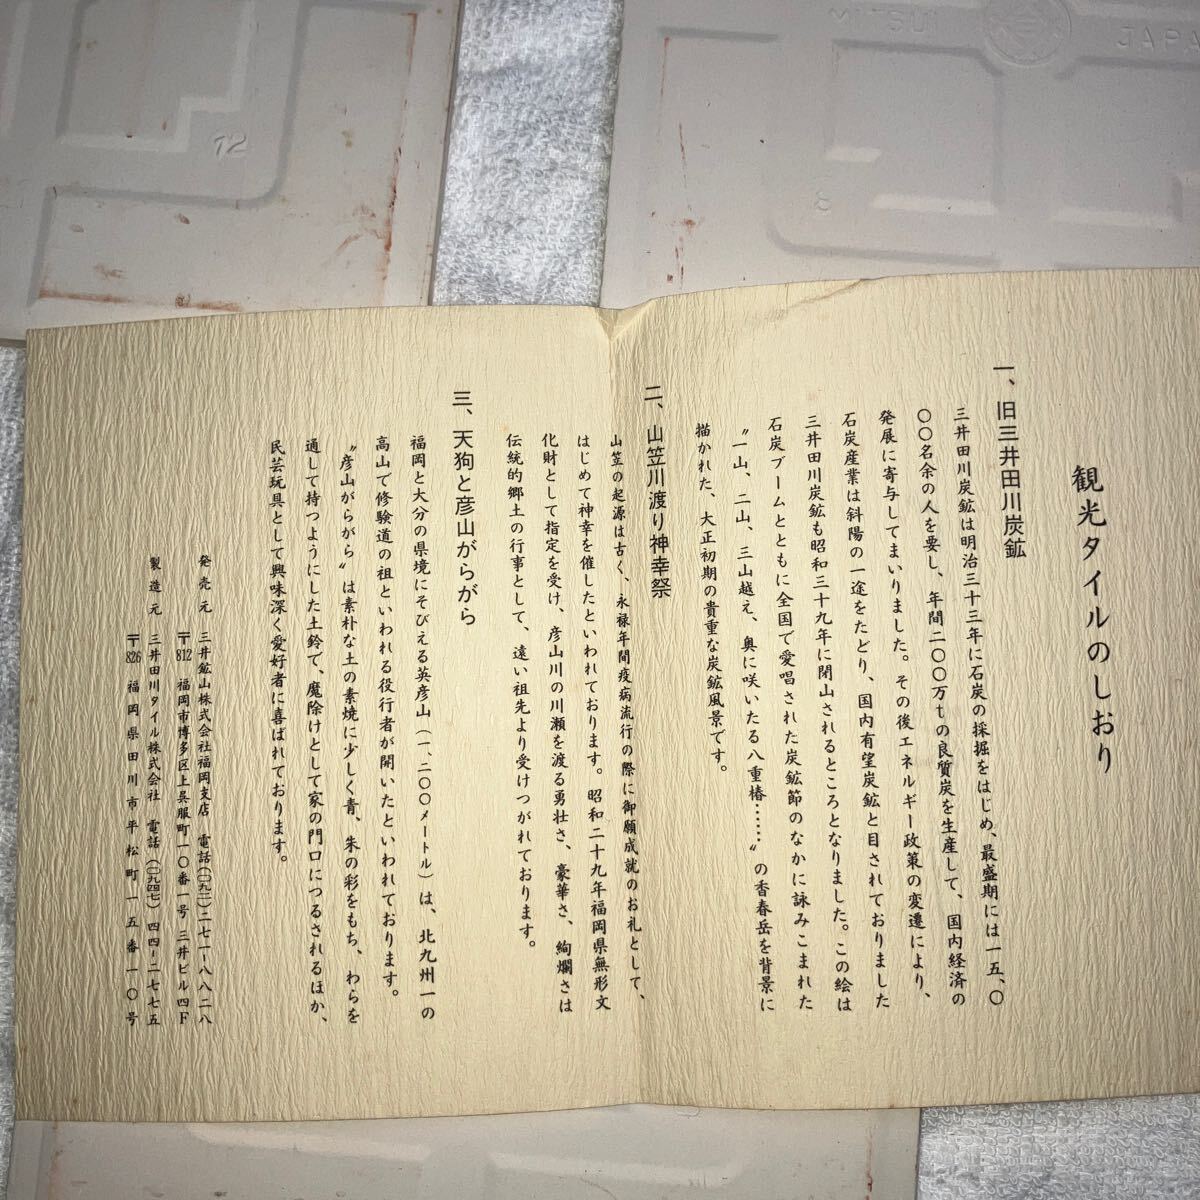 MITSUI
JAPA
72
8
観光タイルのしおり
一、旧三井田川炭鉱
三井田川炭鉱は明治三十三年に石炭の採掘をはじめ、最盛期には一五、〇
〇〇名余の人を要し、年間二〇〇万tの良質炭を生産して、国内経済の
発展に寄与してまいりました。その後エネルギー政策の変遷により、
石炭産業は斜陽の一途をたどり、国内有望炭鉱と目されておりました
三井田川炭鉱も昭和三十九年に閉山されるところとなりました。この絵は
石炭ブームとともに全国で愛唱された炭鉱節のなかに詠みこまれた
〝一山、二山、三山越え、奥に咲いたる八重椿……〟の香春岳を背景に
描かれた、大正初期の貴重な炭鉱風景です。
二、山笠川渡り神幸祭
山笠の起源は古く、永禄年間疫病流行の際に御願成就のお礼として、
はじめて神幸を催したといわれております。昭和二十九年福岡県無形文
化財として指定を受け、彦山川の川瀬を渡る勇壮さ、豪華さ、絢爛さは
伝統的郷土の行事として、遠い祖先より受けつがれております。
三、天狗と彦山がらがら
福岡と大分の県境にそびえる英彦山(一、二〇〇メートル)は、北九州一の
高山で修験道の祖といわれる役行者が開いたといわれております。
〝彦山がらがら〟は素朴な土の素焼に少しく青、朱の彩をもち、わらを
通して持つようにした土鈴で、魔除けとして家の門口につるされるほか、
民芸玩具として興味深く愛好者に喜ばれております。
発売元 三井鉱山株式会社福岡支店 電話(〇九二)二七一-八八二八
〒812 福岡市博多区上呉服町一〇番一号 三井ビル四F
製造元 三井田川タイル株式会社 電話(〇九四七)四四-二七七五
〒826 福岡県田川市平松町一五番一〇号